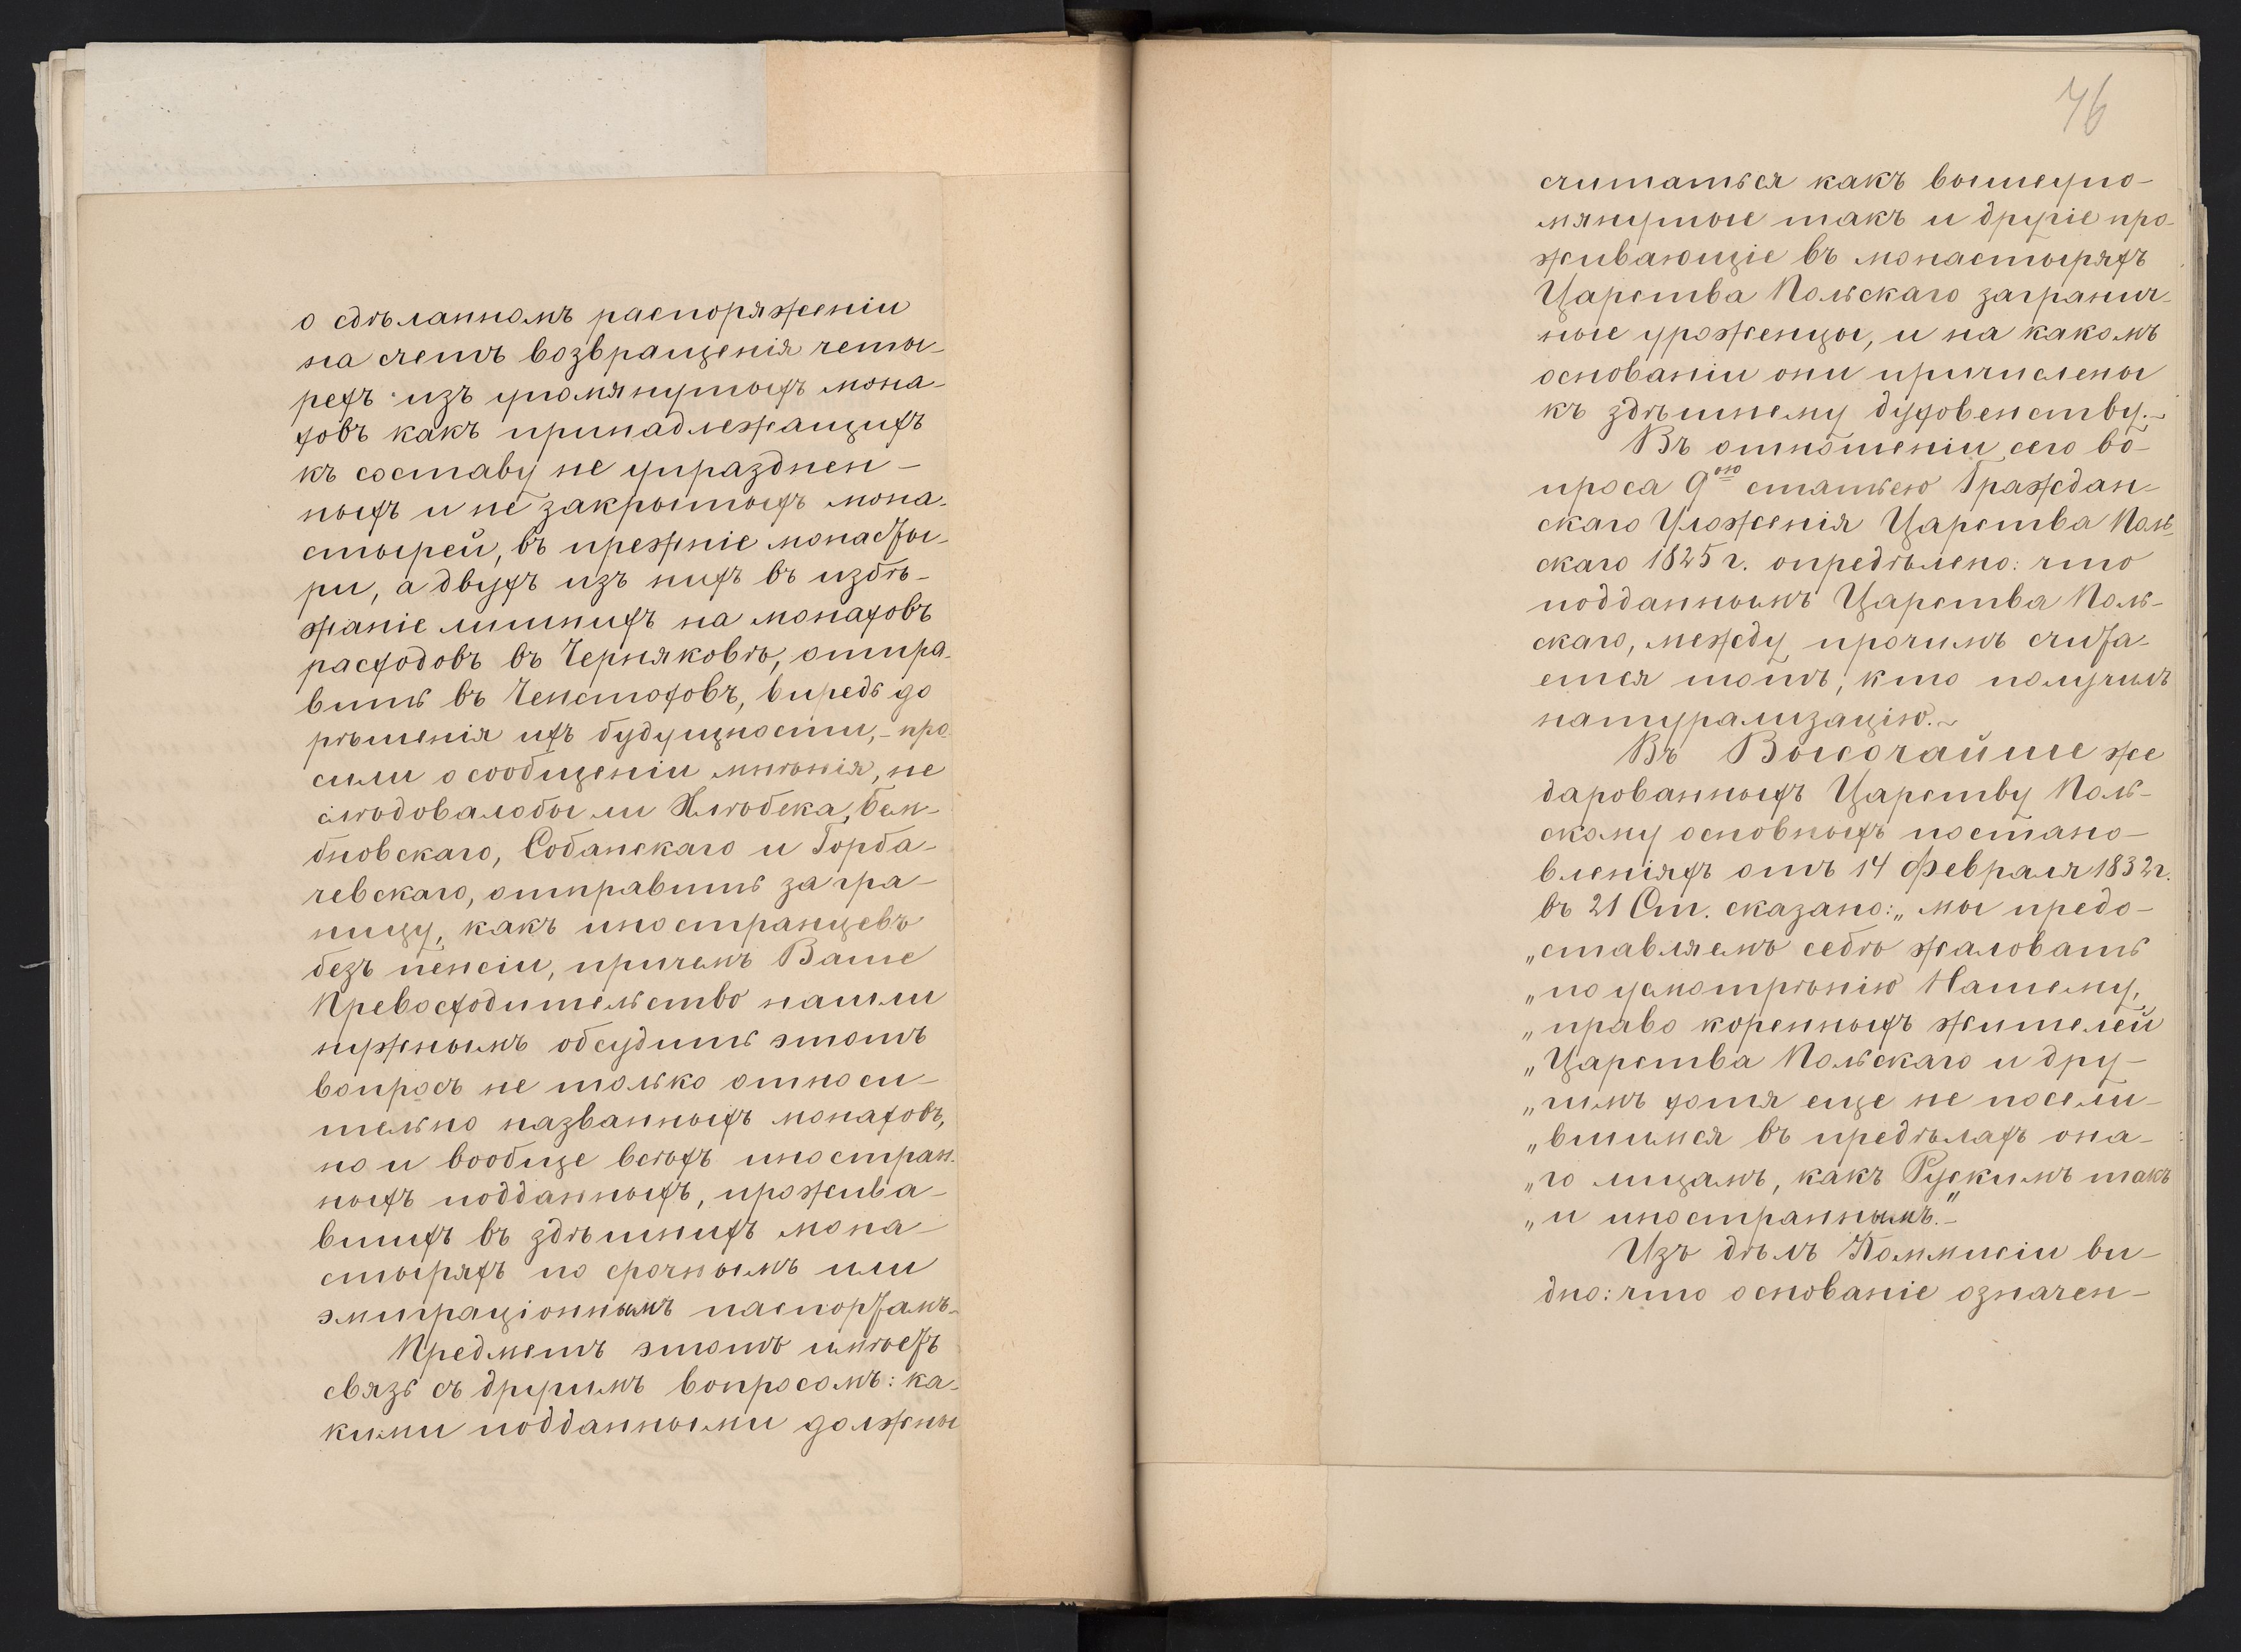 о сдѣланномъ распоряженіи
на счетъ возвращенія четы-
рехъ изъ упомянутыхъ мона-
ховъ какъ принадлежащихъ
къ составу не упразднен-
ныхъ и не закрытыхъ мона-
стырей, въ прежніе монасты-
ри, а двухъ изъ нихъ въ избѣ-
жаніе лишнихъ на монаховъ
расходовъ въ Черняковѣ, отпра-
вить въ Ченстоховъ, впредь до
рѣшенія ихъ будущности, - про-
сили о сообщеніи мнѣнія, не
слѣдовалобы ли Хлѣбека, Бем-
бновскаго, Собанскаго и Горба-
чевскаго, отправить за гра-
ницу, какъ иностранцевъ
безъ пенсіи, причемъ Ваше
Превосходительство нашли
нужнымъ обсудить этотъ
вопросъ не только относи-
тельно названныхъ монаховъ,
но и вообще всѣхъ иностран-
ныхъ подданныхъ, прожива-
вшихъ въ здѣшнихъ мона-
стыряхъ по срочнымъ или
эмиграціоннымъ паспортамъ.-
Предметъ этотъ имѣетъ
связь съ другимъ вопросомъ: ка-
кими подданными должны
76
считаться какъ вышеупо-
мянутые такъ и другіе про-
живающіе въ монастыряхъ
Царства Польскаго загранич-
ные уроженцы, и на какомъ
основаніи они причислены
къ здѣшнему духовенству.-
Въ отношеніи сего во-
проса 9ою статьею Граждан-
скаго Уложенія Царства Поль-
скаго 1825 г. опредѣлено: что
подданнымъ Царства Поль-
скаго, между прочимъ счита-
ется тотъ, кто получилъ
натурализацію.-
Въ Высочайше же
дарованныхъ Царству Поль-
скому основныхъ постано-
вленіяхъ отъ 14 Февраля 1832 г.
въ 21 Ст. сказано: „мы предо-
„ставляемъ себѣ жаловать
„по усмотрѣнію Нашему,
„право коренныхъ жителей
„Царства Польскаго и дру-
„гимъ хотя еще не посели-
„вшимся въ предѣлахъ она-
„го лицамъ, какъ Рускимъ такъ
„и иностраннымъ."-
Изъ дѣлъ Коммисіи ви-
дно: что основаніе означен-